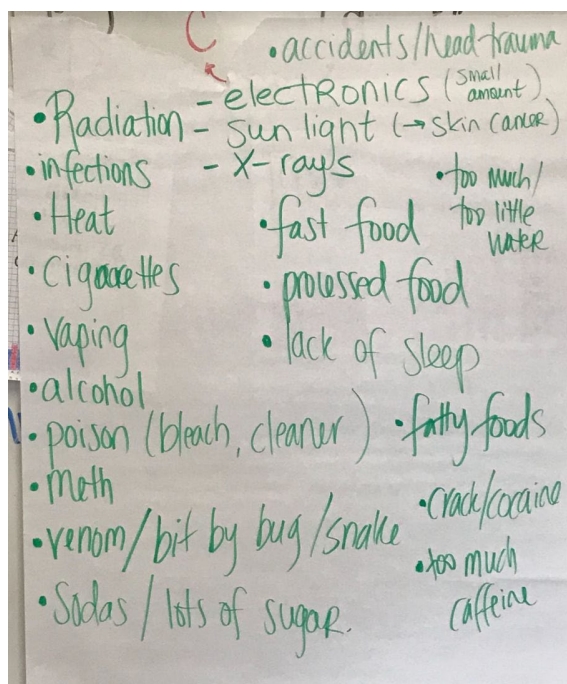 C
• accidents/head trauma
• Radiation - electRonics (small amount)
- sun light (→ skin cancer)
- X-rays
• infections
• Heat
• Cigarettes
• Vaping
• alcohol
• poison (bleach, cleaner)
• meth
• venom/bit by bug/snake
• Sodas/lots of sugar.
• fast food
• processed food
• lack of sleep
• too much/
too little
water
• fatty foods
• crack/cocaine
• too much
caffeine